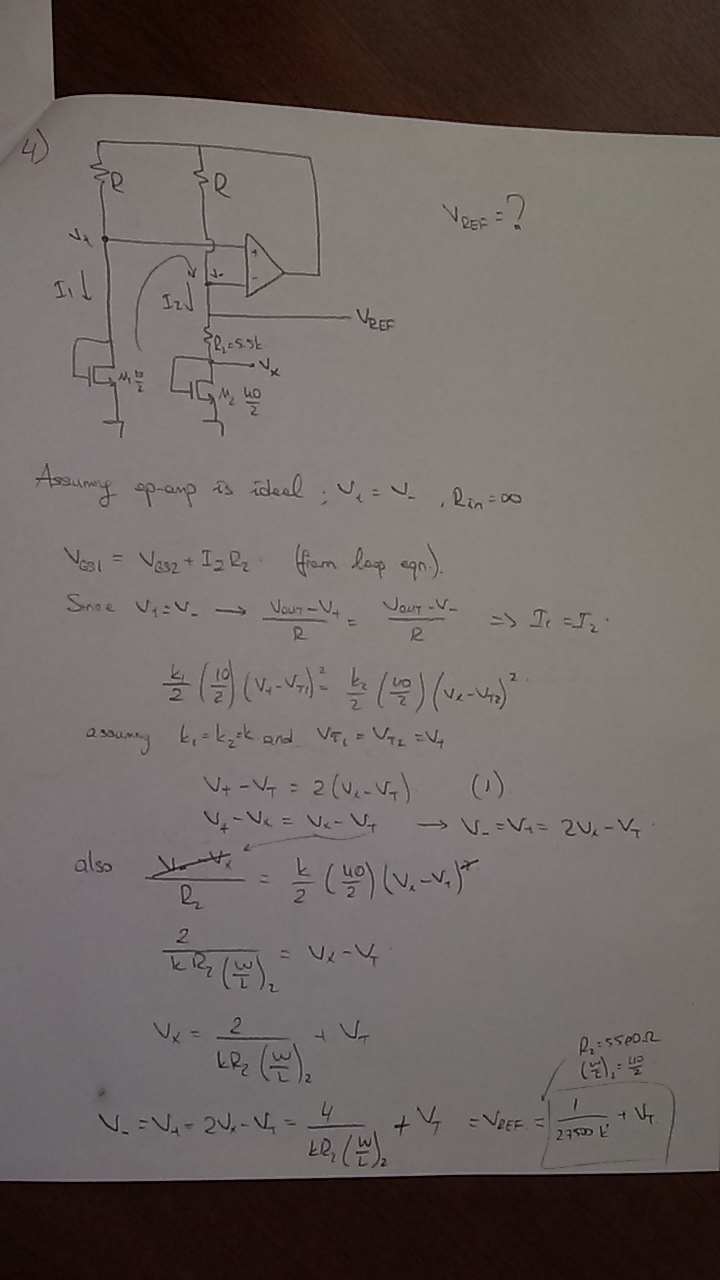 4)
R
R
V_REF = ?
V+
V-
+
-
I₁↓
I₂↓
V_REF
R₂=5.5k
Vx
M₁ 10/2
M₂ 40/2
Assuming op-amp is ideal ; V+ = V- , Rin = ∞
V_GS1 = V_GS2 + I₂R₂ (from loop eqn.).
Since V+ = V- → (V_OUT - V+)/R = (V_OUT - V-)/R ⇒ I₁ = I₂.
k₁/2 (10/2) (V+ - V_T1)² = k₂/2 (40/2) (Vx - V_T2)².
assuming k₁ = k₂ = k and V_T1 = V_T2 = V_T
V+ - V_T = 2(Vx - V_T) (1)
V+ - Vx = Vx - V_T → V- = V+ = 2Vx - V_T.
also (V- - Vx)/R₂ = k/2 (40/2) (Vx - V_T)²
2/(kR₂(W/L)₂) = Vx - V_T
Vx = 2/(kR₂(W/L)₂) + V_T
R₂ = 5500Ω
(W/L)₂ = 40/2
V- = V+ = 2Vx - V_T = 4/(kR₂(W/L)₂) + V_T = V_REF = 1/(27500 k) + V_T